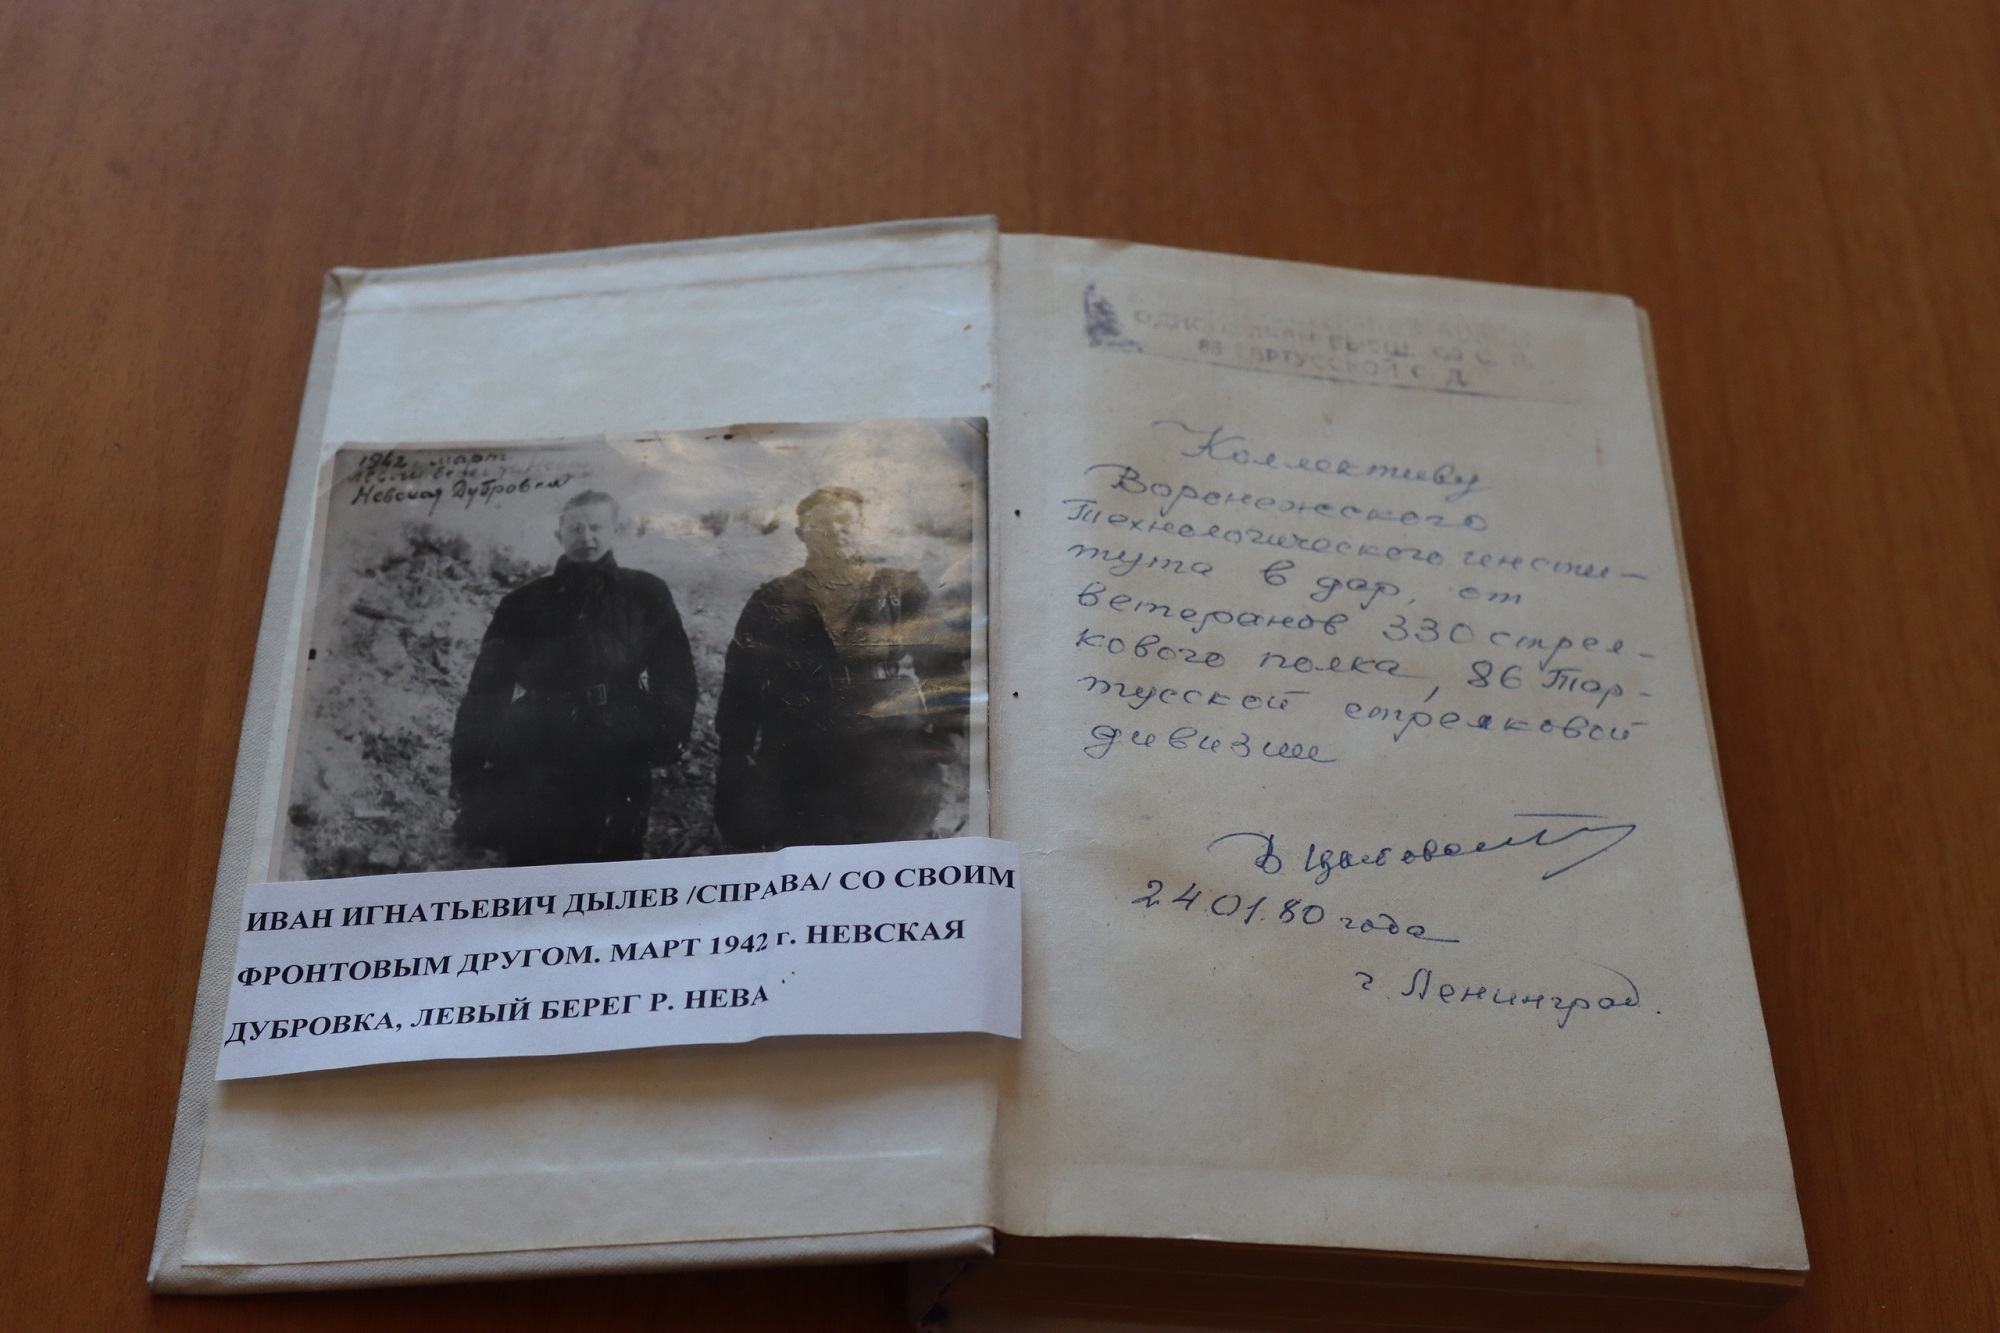 1942 март.
Невская Дубровка
ИВАН ИГНАТЬЕВИЧ ДЫЛЕВ /СПРАВА/ СО СВОИМ
ФРОНТОВЫМ ДРУГОМ. МАРТ 1942 г. НЕВСКАЯ
ДУБРОВКА, ЛЕВЫЙ БЕРЕГ Р. НЕВА
ТАРТУССКОЙ С. Д.
Коллективу
Воронежского
Технологического инсти-
тута в дар, от
ветеранов 330 стрел-
кового полка, 86 Тар-
тусской стрелковой
дивизии
24.01.80 года
г. Ленинград.